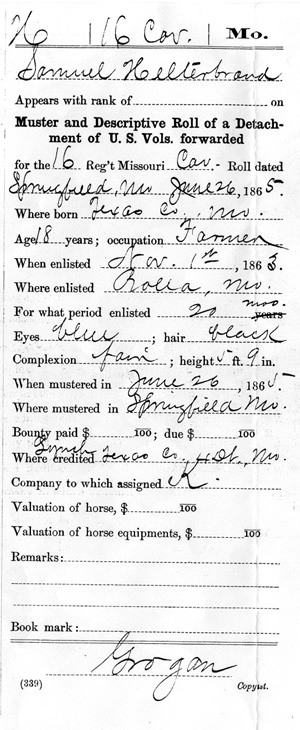 H | 16 Cav. | Mo.
Samuel Helterbrand
Appears with rank of on
Muster and Descriptive Roll of a Detach-
ment of U. S. Vols. forwarded
for the 16 Reg't Missouri Cav - Roll dated
Springfield, Mo June 26, 1865.
Where born Texas Co., Mo.
Age 18 years; occupation Farmer
When enlisted Nov. 1st, 1863.
Where enlisted Rolla, Mo.
mos.
For what period enlisted 20 years
Eyes blue; hair black
Complexion fair; height 5 ft. 9 in.
When mustered in June 26, 1865.
Where mustered in Springfield Mo.
Bounty paid $ 100; due $ 100
Lynch
Where credited Texas Co., 4 Dt., Mo.
Company to which assigned K.
Valuation of horse, $ 100
Valuation of horse equipments, $ 100
Remarks:
Book mark:
Grogan
(339) Copyist.